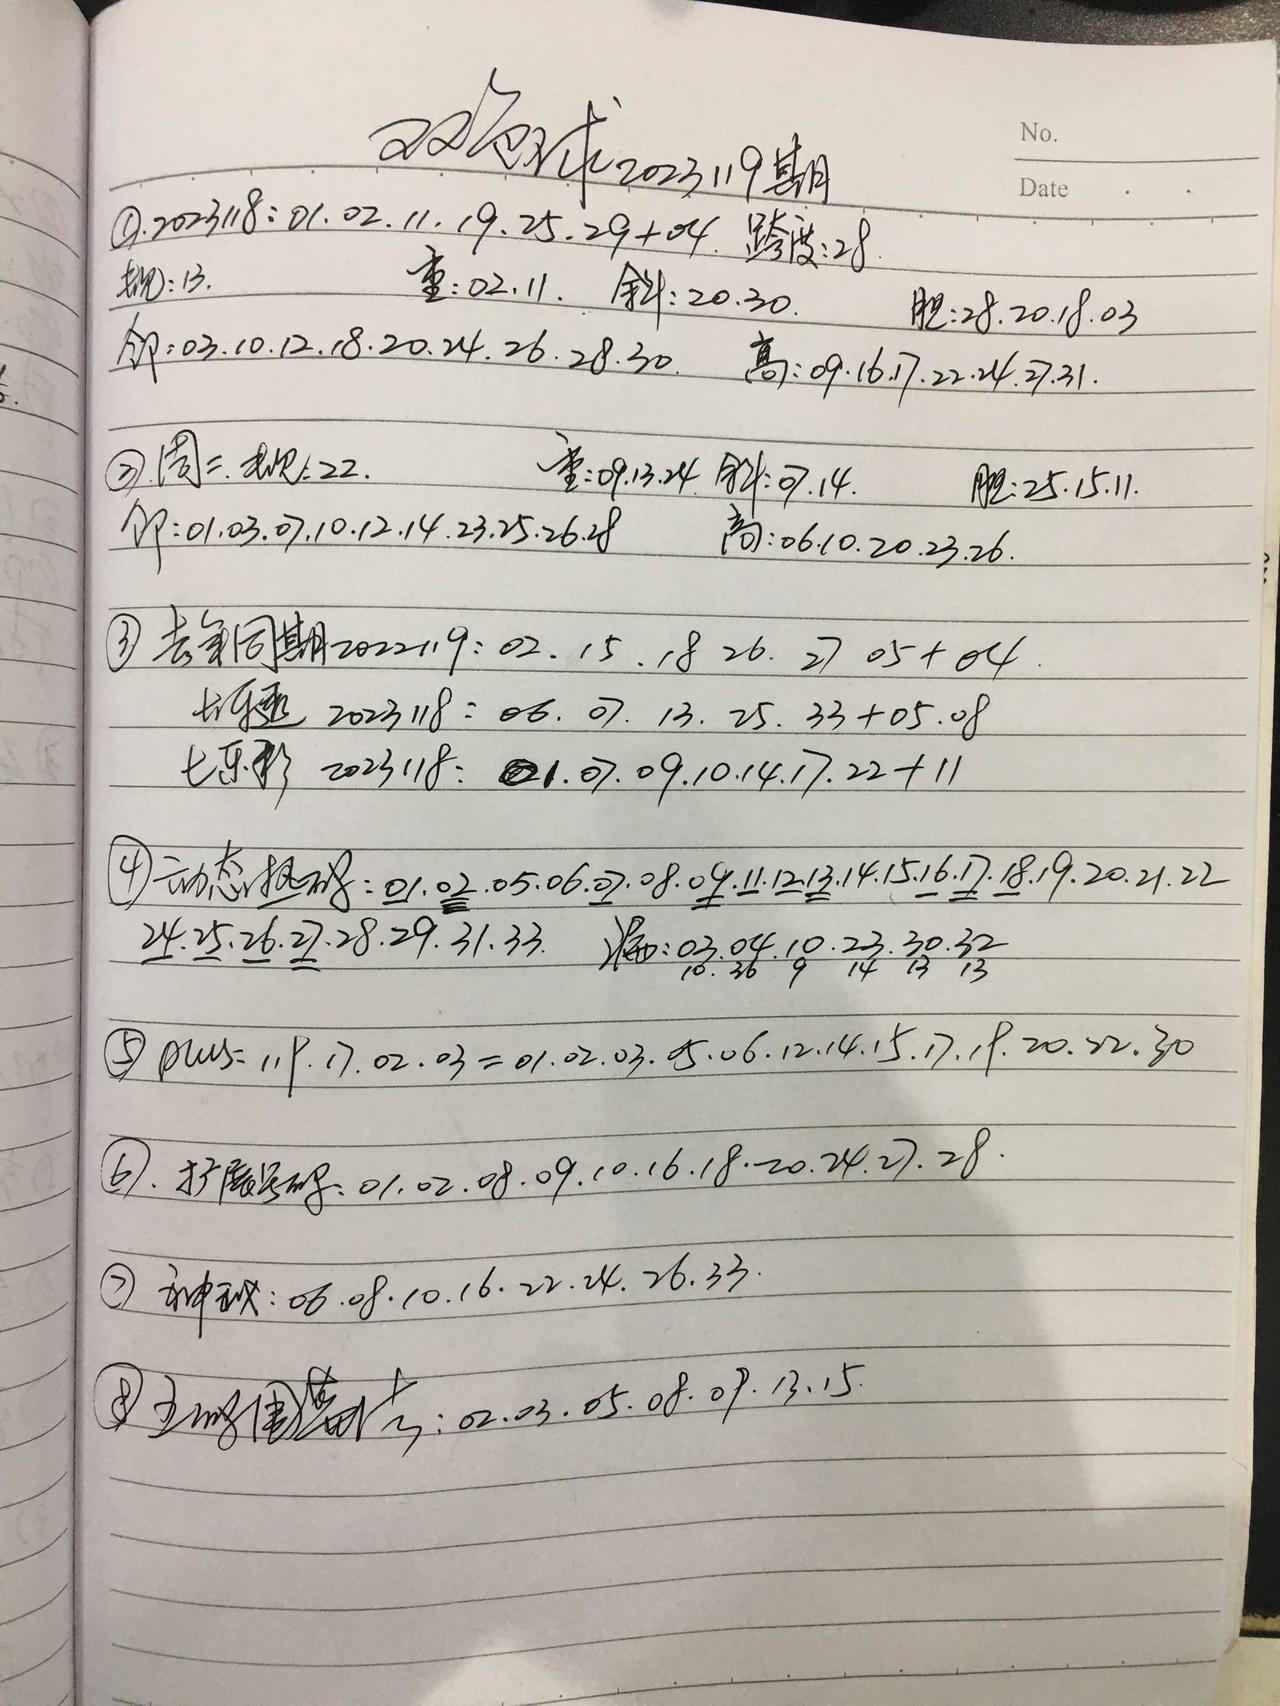 双色球2023119期
No.
Date
①.2023118:01.02.11.19.25.29+04 跨度:28
规:13. 重:02.11. 斜:20.30. 胆:28.20.18.03
邻:03.10.12.18.20.24.26.28.30. 高:09.16.17.22.24.27.31.
②周二.规:22. 重:09.13.24 斜:07.14. 胆:25.15.11.
邻:01.03.07.10.12.14.23.25.26.28 高:06.10.20.23.26.
③去年同期2022119:02.15.18 26.27 05+04.
七乐 2023118:06.07.13.25.33+05.08
七乐彩 2023118:01.07.09.10.14.17.22+11
④动态热码:01.02.05.06.07.08.09.11.12.13.14.15.16.17.18.19.20.21.22
24.25.26.27.28.29.31.33. 漏:03.04.10.23.30.32
10. 36 9 14 13 13
⑤plus:119.17.02.03=01.02.03.05.06.12.14.15.17.19.20.22.30
⑥.扩展号码:01.02.08.09.10.16.18.20.24.27.28.
⑦神秘:06.08.10.16.22.24.26.33.
⑧ 码围蓝 :02.03.05.08.09.13.15.